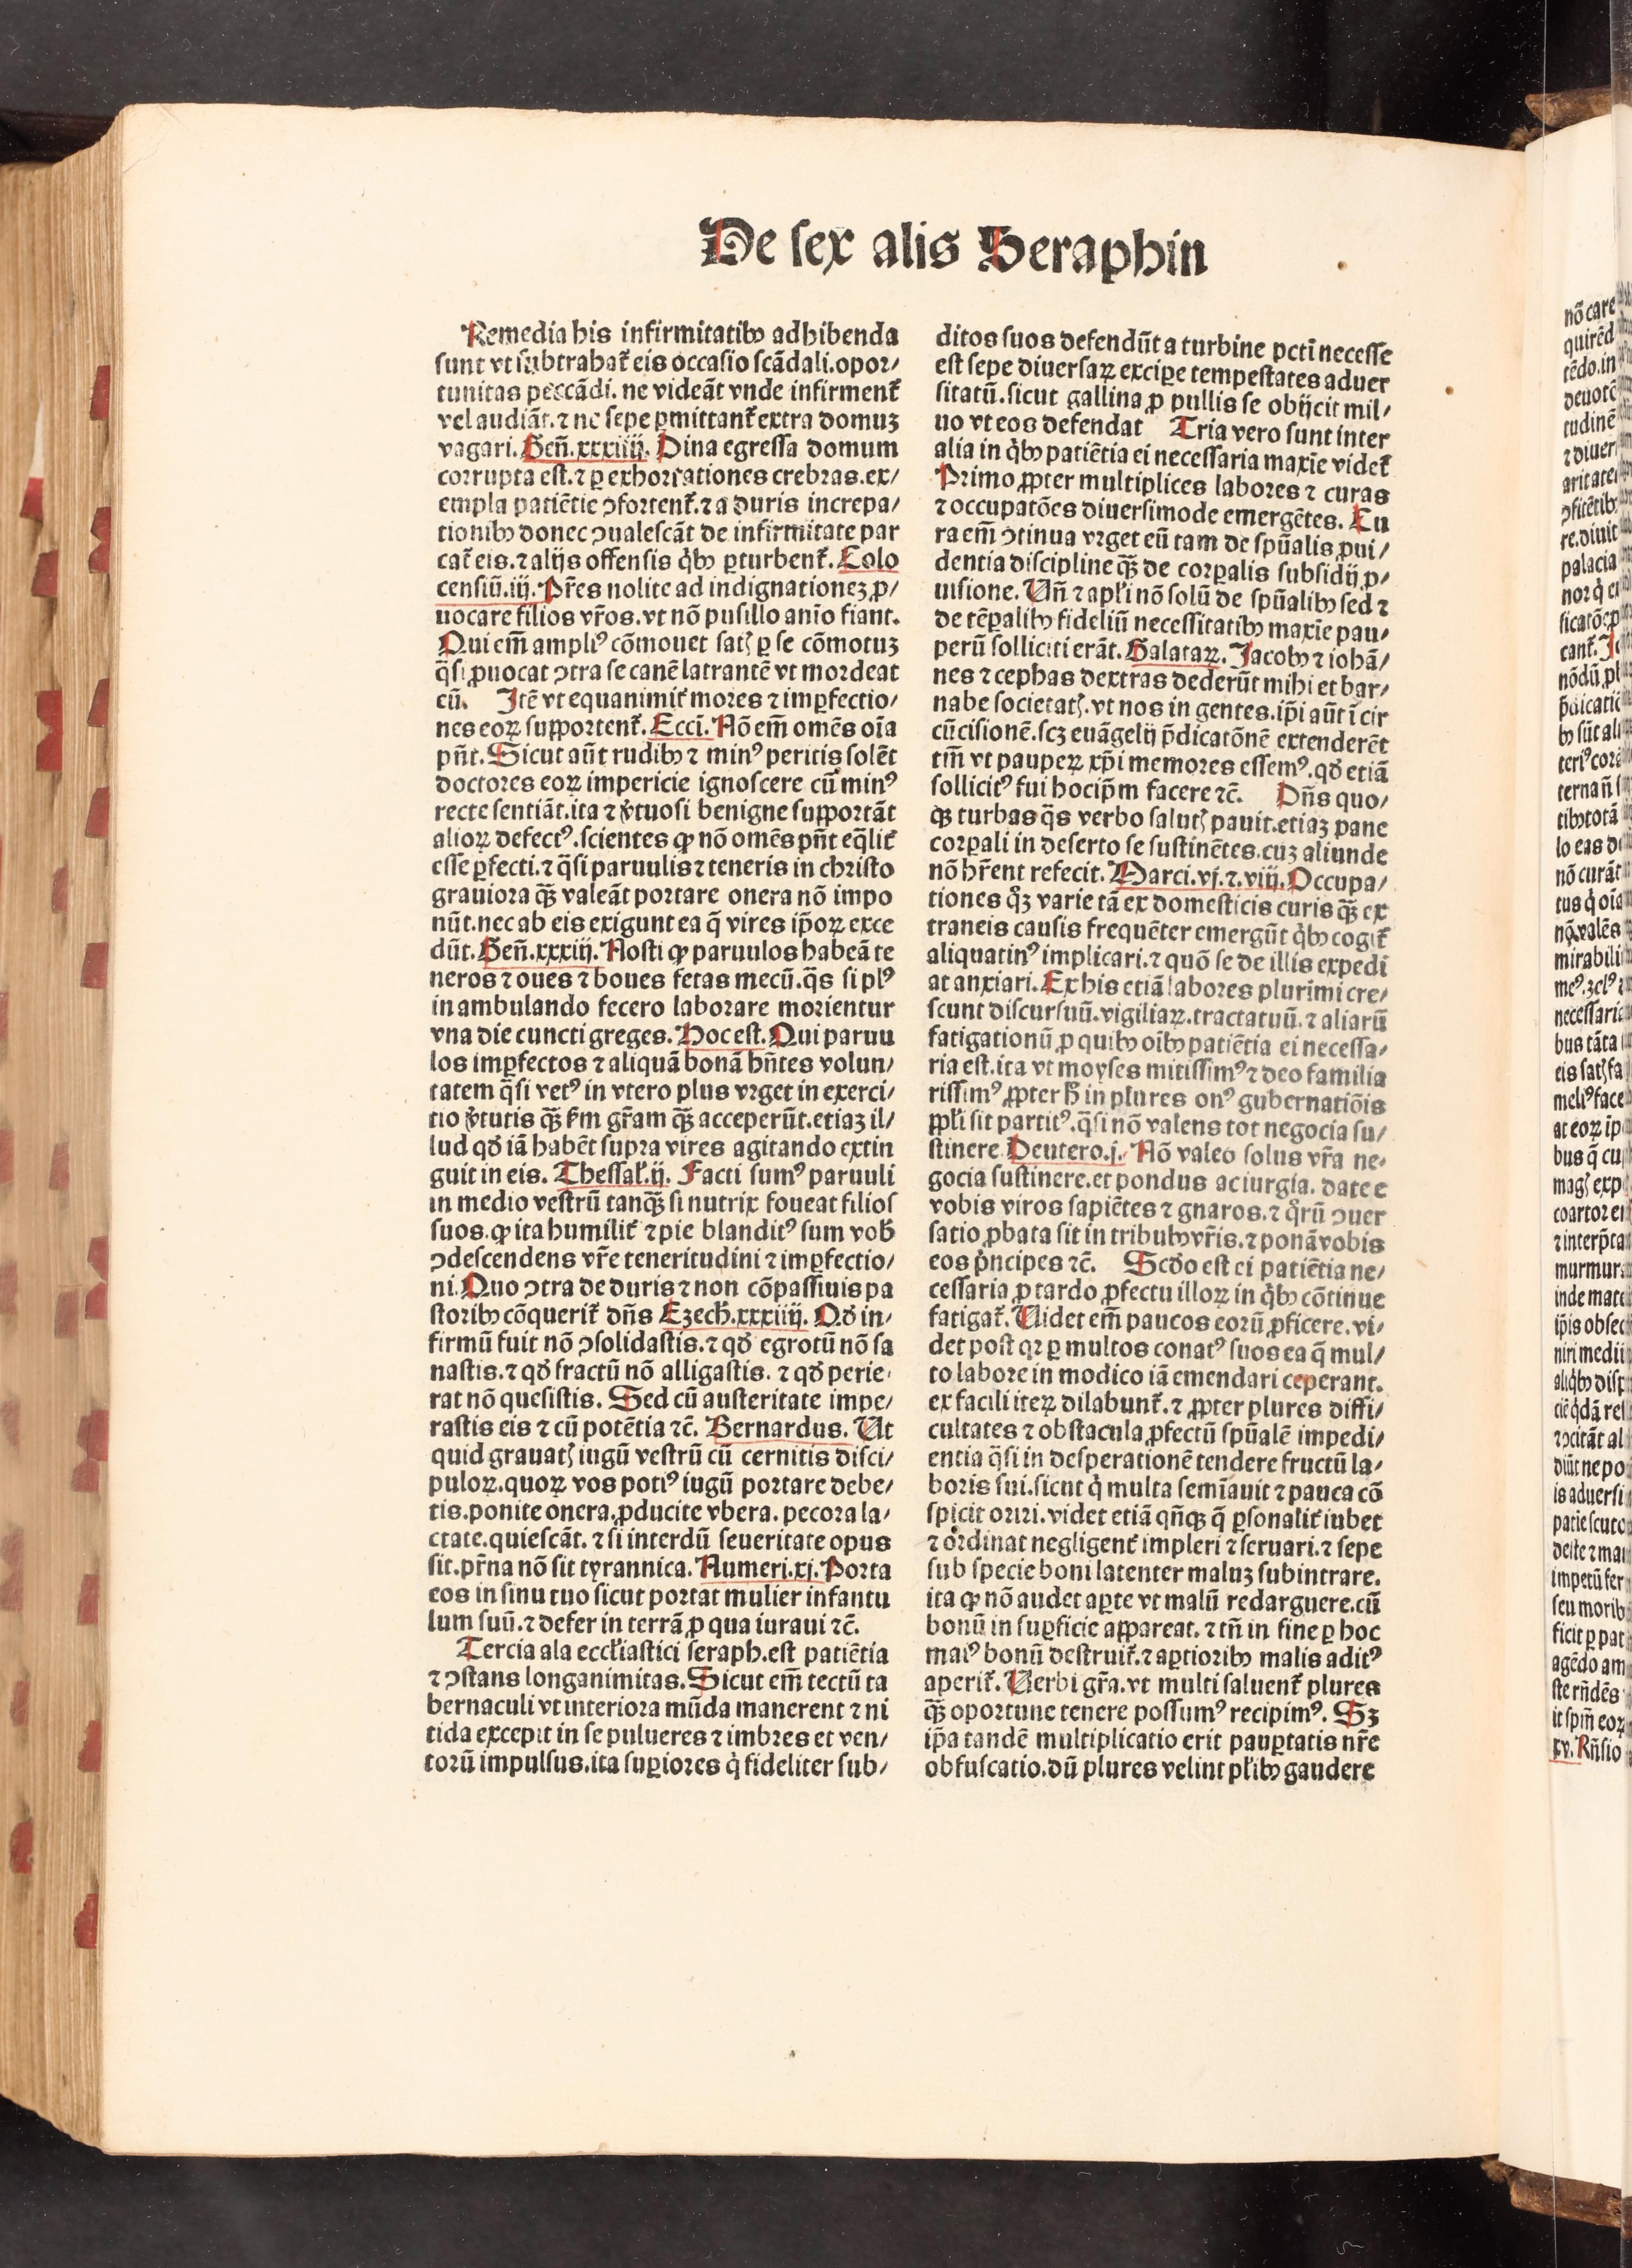 De sex alis Seraphin
Remedia his infirmitatibꝰ adhibenda
sunt vt subtrahat᷑ eis occasio scādali.opor⸗
tunitas peccādi. ne videāt vnde infirment᷑
vel audiāt.⁊ ne sepe ꝑmittant᷑ extra domuꝫ
vagari. Geñ.xxxiiij. Dina egressa domum
corrupta est.⁊ ꝑ exhortationes crebras.ex⸗
empla patiētie ꝯfortent᷑.⁊ a duris increpa⸗
tionibꝰ donec ꝯualescāt de infirmitate par
cat᷑ eis.⁊ alijs offensis q̇bꝰ ꝑturbent᷑. Colo
censiū.iij. Pr̄es nolite ad indignationeꝫ ꝓ⸗
uocare filios vr̄os.vt nō pusillo anīo fiant.
Qui em̄ ampliꝰ cōmouet satꝭ ꝑ se cōmotuꝫ
q̄si ꝓuocat ꝯtra se canē latrantē vt mordeat
eū. Itē vt equanimit᷑ mores ⁊ imꝑfectio⸗
nes eoꝝ supportent᷑. Ecci. Nō em̄ omēs oīa
pn̄t. Sicut aūt rudibꝰ ⁊ minꝰ peritis solēt
doctores eoꝝ impericie ignoscere cū minꝰ
recte sentiāt.ita ⁊ v̓tuosi benigne supportāt
alioꝝ defectꝰ.scientes ꝙ nō omēs pn̄t eq̄lit᷑
esse ꝑfecti.⁊ q̄si paruulis ⁊ teneris in christo
grauiora q̄ꝫ valeāt portare onera nō impo
nūt.nec ab eis exigunt ea q̄ vires ip̄oꝝ exce
dūt. Geñ.xxxiij. Nosti ꝙ paruulos habeā te
neros ⁊ oues ⁊ boues fetas mecū.q̄s si plꝰ
in ambulando fecero laborare morientur
vna die cuncti greges. Hoc est. Qui paruu
los imꝑfectos ⁊ aliquā bonā hn̄tes volun⸗
tatem q̄si vetꝰ in vtero plus vrget in exerci⸗
tio v̓tutis q̄ꝫ ẜm gr̄am q̄ꝫ acceperūt.etiaꝫ il⸗
lud qđ iā habēt supra vires agitando extin
guit in eis. Thessal̄.ij. Facti sumꝰ paruuli
in medio vestrū tanq̄ꝫ si nutrix foueat filios
suos.ꝙ ita humilit᷑ ⁊ pie blanditꝰ sum vob̄
ꝯdescendens vr̄e teneritudini ⁊ imꝑfectio⸗
ni. Quo ꝯtra de duris ⁊ non cōpassiuis pa
storibꝰ cōquerit᷑ dn̄s Ezech̄.xxxiiij. Qđ in⸗
firmū fuit nō ꝯsolidastis.⁊ qđ egrotū nō sa
nastis.⁊ qđ fractū nō alligastis. ⁊ qđ perie⸗
rat nō quesistis. Sed cū austeritate impe⸗
rastis eis ⁊ cū potētia ⁊c̄. Bernardus. Ut
quid grauatꝭ iugū vestrū cū cernitis disci⸗
puloꝝ.quoꝝ vos potiꝰ iugū portare debe⸗
tis.ponite onera.ꝓducite vbera. pecora la⸗
ctate.quiescāt. ⁊ si interdū seueritate opus
sit.pr̄na nō sit tyrannica. Numeri.xj. Porta
eos in sinu tuo sicut portat mulier infantu
lum suū.⁊ defer in terrā ꝓ qua iuraui ⁊c̄.
Tercia ala eccl̄iastici seraph.est patiētia
⁊ ꝯstans longanimitas. Sicut em̄ tectū ta
bernaculi vt interiora mūda manerent ⁊ ni
tida excepit in se pulueres ⁊ imbres et ven⸗
torū impulsus.ita suꝑiores q̇ fideliter sub⸗
ditos suos defendūt a turbine pcti necesse
est sepe diuersaꝝ exciꝑe tempestates aduer
sitatū.sicut gallina ꝓ pullis se obijcit mil⸗
uo vt eos defendat Tria vero sunt inter
alia in q̇bꝰ patiētia ei necessaria maxīe videt᷑
Primo ꝓpter multiplices labores ⁊ curas
⁊ occupatōes diuersimode emergētes. Cu
ra em̄ ꝯtinua vrget eū tam de spūalis ꝓui⸗
dentia discipline q̄ꝫ de corꝑalis subsidij ꝓ⸗
uisione. Un̄ ⁊ apl̄i nō solū de spūalibꝰ sed ⁊
de tēꝑalibꝰ fideliū necessitatibꝰ maxīe pau⸗
perū solliciti erāt. Galataꝝ. Jacobꝰ ⁊ iohā⸗
nes ⁊ cephas dextras dederūt mihi et bar⸗
nabe societatꝭ.vt nos in gentes.ip̄i aūt ī cir
cūcisionē.scꝫ euāgelij p̄dicatōnē extenderēt
tm̄ vt pauꝑeꝝ xp̄i memores essemꝰ.qđ etiā
sollicitꝰ fui hocip̄m facere ⁊c̄. Dn̄s quo⸗
qꝫ turbas q̄s verbo salutꝭ pauit.etiaꝫ pane
corꝑali in deserto se sustinētes.cuꝫ aliunde
nō hr̄ent refecit. Marci.vj.⁊.viij. Occupa⸗
tiones qꝫ varie tā ex domesticis curis q̄ꝫ ex
traneis causis frequēter emergūt q̇bꝰ cogit᷑
aliquatinꝰ implicari.⁊ quō se de illis expedi
at anxiari. Ex his etiā labores plurimi cre⸗
scunt discursuū.vigiliaꝝ.tractatuū.⁊ aliarū
fatigationū ꝓ quibꝰ oībꝰ patiētia ei necessa⸗
ria est.ita vt moyses mitissimꝰ ⁊ deo familia
rissimꝰ ꝓpter h̄ in plures onꝰ gubernatiōis
ppl̄i sit partitꝰ.q̄si nō valens tot negocia su⸗
stinere Deutero.j. Nō valeo solus vr̄a ne⸗
gocia sustinere.et pondus ac iurgia. date e
vobis viros sapiētes ⁊ gnaros.⁊ q̊rū ꝯuer
satio ꝓbata sit in tribubꝰ vr̄is.⁊ ponā vobis
eos p̓ncipes ⁊c̄. Scđo est ei patiētia ne⸗
cessaria ꝓ tardo ꝓfectu illoꝝ in q̇bꝰ cōtinue
fatigat᷑. Uidet em̄ paucos eorū ꝓficere. vi⸗
det post qꝝ ꝑ multos conatꝰ suos ea q̄ mul⸗
to labore in modico iā emendari ceperant.
ex facili iteꝝ dilabunt᷑.⁊ ꝓpter plures diffi⸗
cultates ⁊ obstacula ꝓfectū spūalē impedi⸗
entia q̄si in desperationē tendere fructū la⸗
boris sui.sicut q̇ multa semīauit ⁊ pauca cō
spicit oriri. videt etiā qn̄qꝫ q̄ ꝑsonalit᷑ iubet
⁊ ordinat negligent᷑ impleri ⁊ seruari.⁊ sepe
sub specie boni latenter maluꝫ subintrare.
ita ꝙ nō audet aꝑte vt malū redarguere.cū
bonū in suꝑficie appareat. ⁊ tn̄ in fine ꝑ hoc
maiꝰ bonū destruit᷑.⁊ aꝑtioribꝰ malis aditꝰ
aperit᷑. Uerbi gr̄a.vt multi saluent᷑ plures
q̄ꝫ oportune tenere possumꝰ recipimꝰ. Sꝫ
ip̄a tandē multiplicatio erit pauꝑtatis nr̄e
obfuscatio.dū plures velint pl̄ibꝰ gaudere